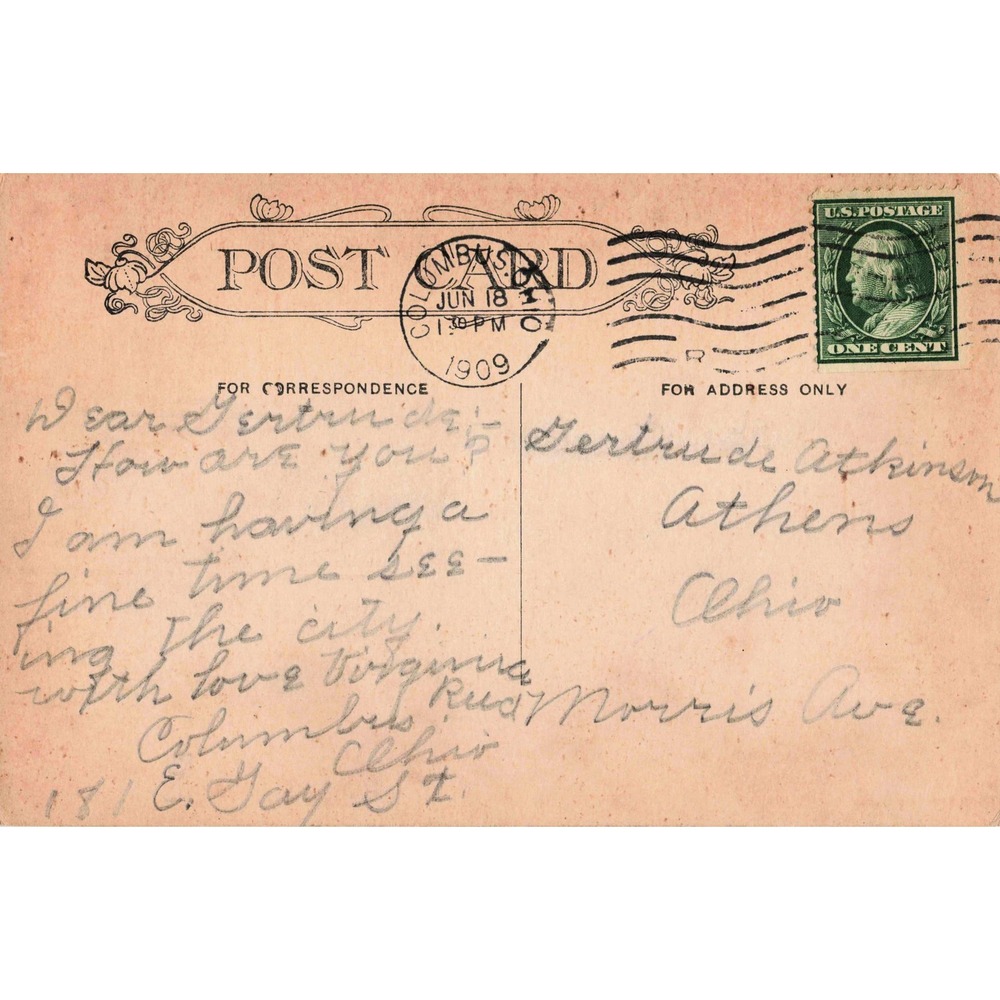 POST CARD
COLUMBUS, OHIO
JUN 18
1 30 PM
1909
U.S. POSTAGE
ONE CENT
R
FOR CORRESPONDENCE
Dear Gertrude;-
How are you?
I am having a
fine time see-
ing the city.
with love Virginia
Columbus
Ohio
181 E. Gay St.
FOR ADDRESS ONLY
Gertrude Atkinson
Athens
Ohio
Morris Ave.